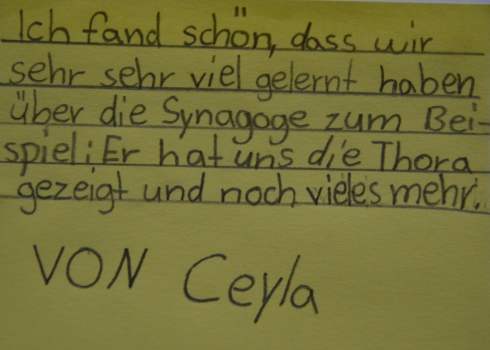 Ich fand schön, dass wir
sehr sehr viel gelernt haben
über die Synagoge zum Bei-
spiel: Er hat uns die Thora
gezeigt und noch vieles mehr.
VON Ceyla